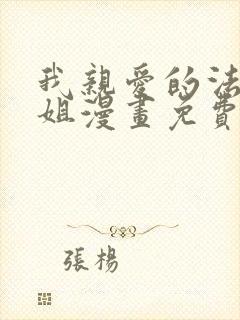 我親愛的法
姐漫畫免費
張楊